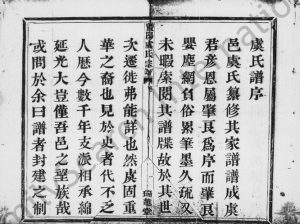 虞氏譜序
邑虞氏纂修其家譜譜成虞
君彥恩屬肇㫒為序而肇㫒
嬰塵網負俗累筆墨久疏又
未暇索閱其譜牒故於其世
次遷徙弗能詳也然虞固重
華之裔也見於史者代不乏
人歷今數千年支派相承綿
延光大豈僅吾邑之望族哉
或問於余曰譜者封建之制
瑞萱堂